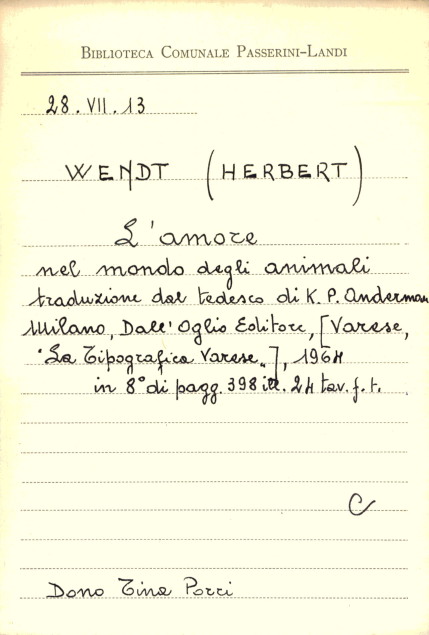 BIBLIOTECA COMUNALE PASSERINI-LANDI
28. VII. 13
WENDT (HERBERT)
L'amore
nel mondo degli animali
traduzione dal tedesco di K. P. Anderman
Milano, Dall'Oglio Editore, [Varese,
"La Tipografica Varese"], 1964
in 8° di pagg. 398 ill. 24 tav. f. t.
C
Dono Tina Porri